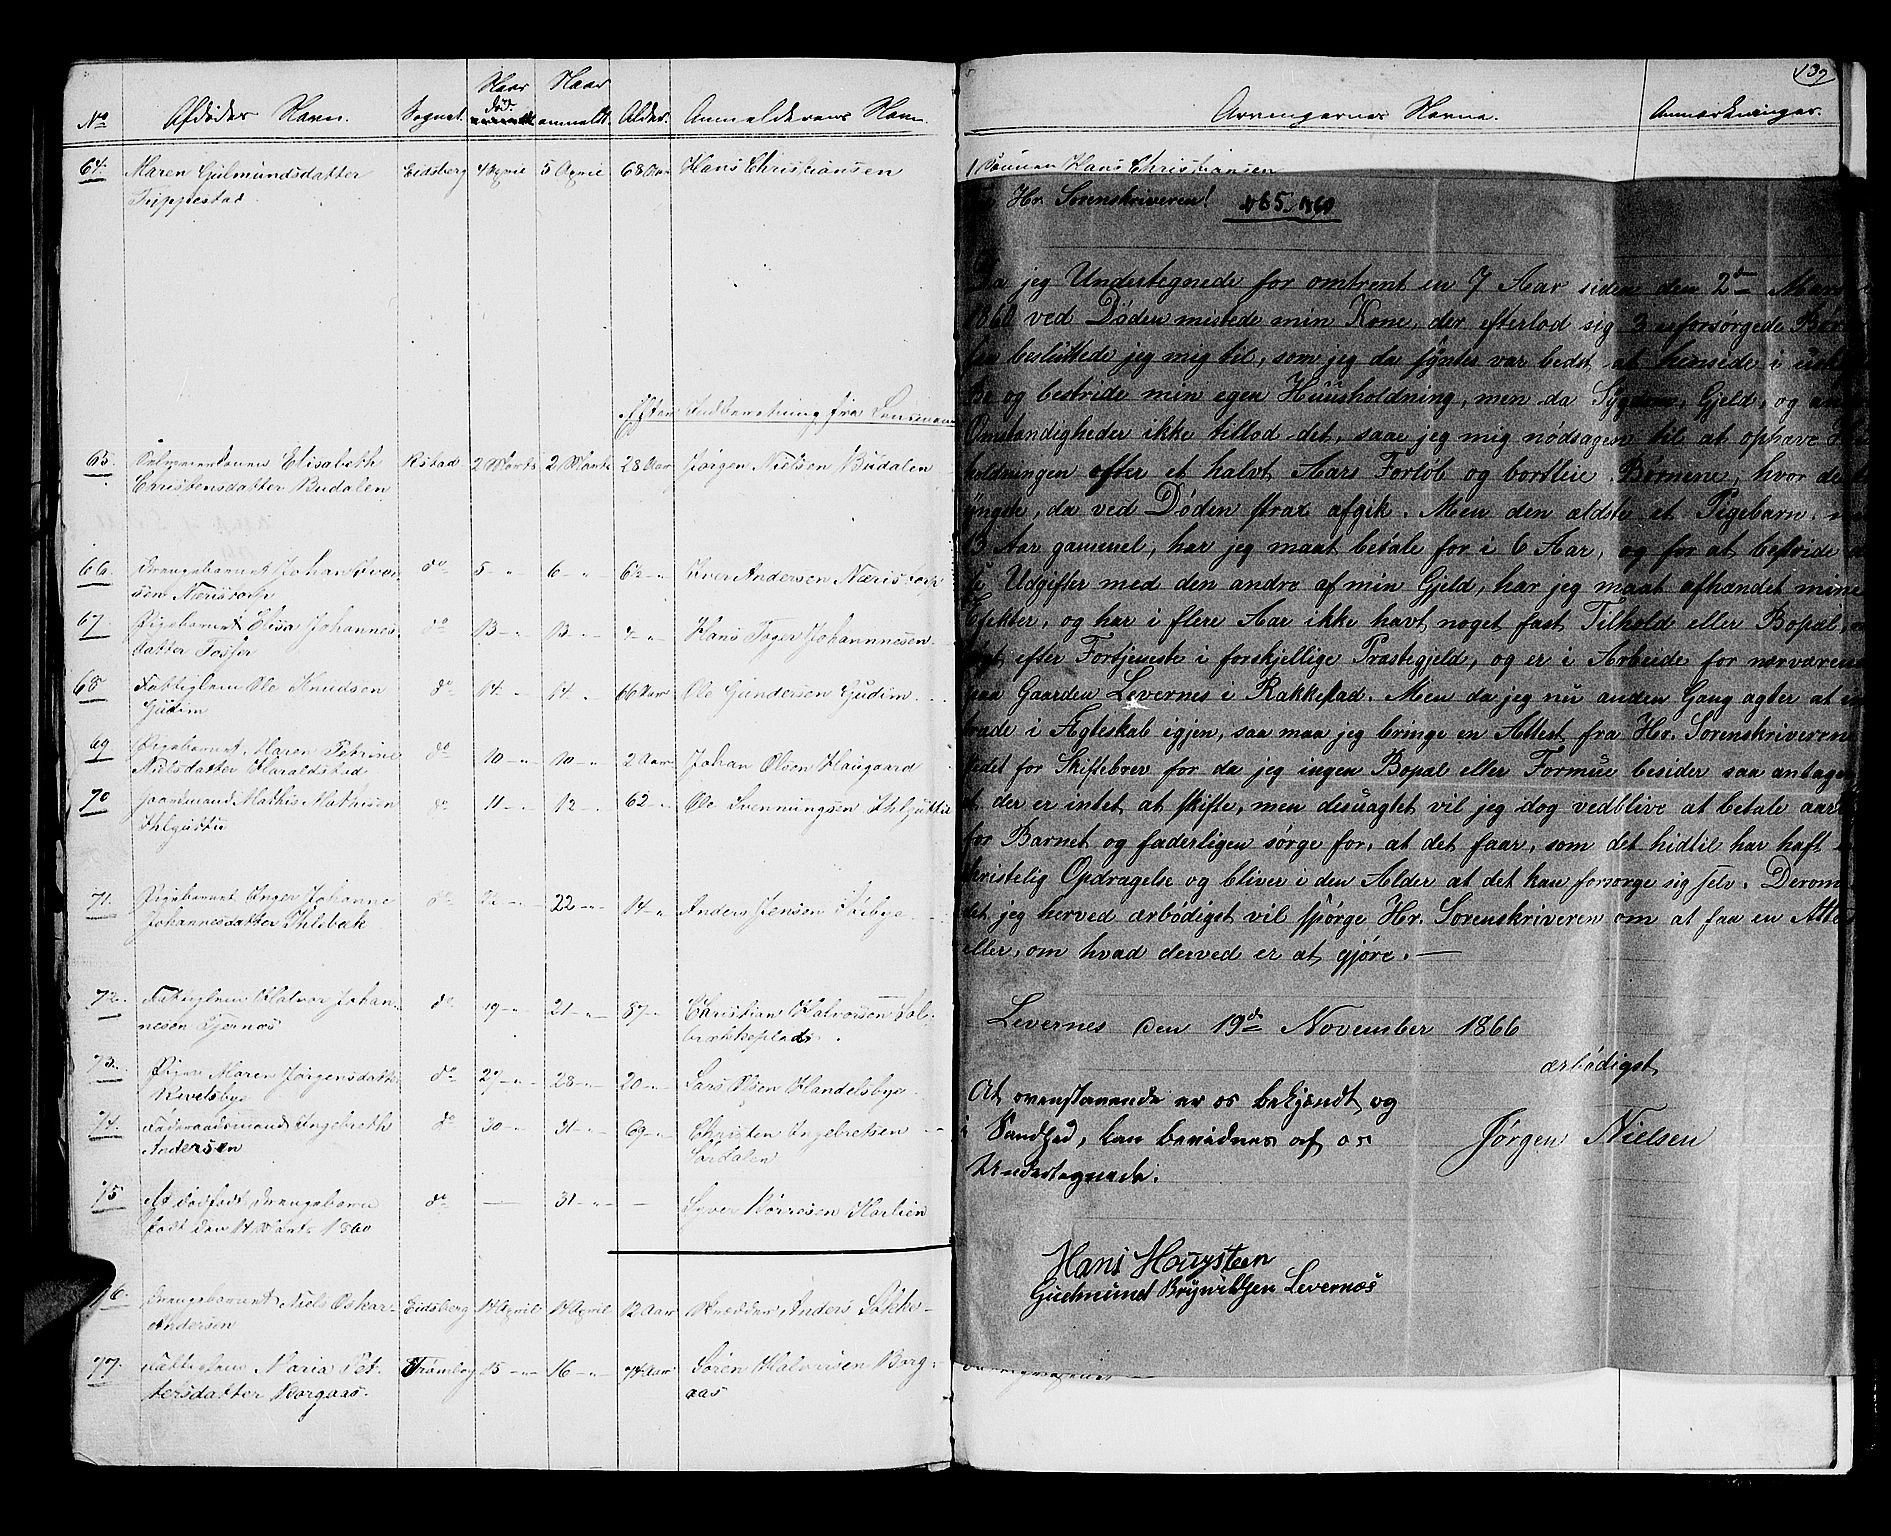 No Afdødes Navn. Sognet. Naar død. Naar anmeldt. Alder. Anmelderens Navn.
64. Maren Gulmundsdatter Eidsberg 4 April 5 April 68 Aar Hans Christiansen
Trippestad
Efter Indberetning fra Lensmanden
65. Selveierkonen Elisabeth Rkstad 2 Marts 2 Marts 28 Aar Jørgen Nielsen Budalen
Christensdatter Budalen
66. Drengebarnet Johan Iver- do 5 - " 6 - " 6½ - " Iver Andersen Næristorp
sen Næristorp
67. Pigebarnet Elisa Johannes- do 13 - " 13 - " Hans Toger Johannnesen
datter Fosser
68. Fattiglem Ole Knudsen do 14 " 14 - " 66 Aar Ole Gundersen Gudim
Gudim
69. Pigebarnet Maren Petrine do 10 - " 10 - " 2 Aar Johan Olsen Haugaard
Nielsdatter Haraldstad
70. Gaardmand Mathis Mathisen do 11 - " 12 - " 62 - " Ole Svenningsen Ihlguttu
Ihlguttu
71. Pigebarnet Inger Johanne do 22 - " 14 - " Anders Jensen
Johannesdatter Ihlebæk
72. Fattiglem Halvor Johan- do 19 - " 21 - " 87 - " Christian Halvorsen
nesen Tjernæs
73. Pige Maren Jørgensdatter do 27 - " 28 - " 20 - " Lars Olsen Handelsbye
Kivelsbye
74. Føderaadsmand Ingebreth do 30 - " 31 - " 69 - " Christen Ingebretsen
Andersen Sørdalen
75. Et dødfødt Drengebarn do — 31 - " — Syver Børresen
født den 14 Marts 1860
76. Drengebarnet Niels Oskar Eidsberg 14 April 14 April 12 Aar Anders
Andersen
77. Fattiglem Maria Pet- Trømborg 15 - " 16 - " 74 Aar Søren Halvorsen Borg-
tersdatter Borgaas. aas
Arvingernes Navne. Anmærkninger.
139
1 Sønnen Hans Christiansen
Hr. Sorenskriveren! No 65. 1860
Da jeg Undertegnede for omtrent en 7 Aar siden den 2den Marts
1860 ved Døden mistede min Kone, der efterlod sig 3 uforsørgede Børn
saa besluttede jeg mig til, som jeg da syntes var bedst at hensidde i
Bo og bestride min egen Huusholdning, men da Sygdom, Gjeld, og
Omstændigheder ikke tillod det, saae jeg mig nødsagen til at ophæve
holdningen efter et halvt Aars Forløb og bortleie Børnene, hvor de to
yngste, da ved Døden strax afgik. Men den ældste et Pigebarn, nu
13 Aar gammel, har jeg maat betale for i 6 Aar, og for at bestride
Udgifter med den andre af min Gjeld, har jeg maat afhændet mine
Efekter, og har i flere Aar ikke havt noget fast Tilhold eller Bopæl,
efter Fortjeneste i forskjellige Præstegjeld, og er i Arbeide for nærværende
paa Gaarden Levernes i Rakkestad. Men da jeg nu anden Gang agter at
træde i Ægteskab igjen, saa maa jeg bringe en Attest fra Hr. Sorenskriveren
istedet for Skiftebrev for da jeg ingen Bopæl eller Formue besider saa antages
at der er intet at skifte, men desuagtet vil jeg dog vedblive at betale
for Barnet og faderligen sørge for, at det faar, som det hidtil har haft
christelig Opdragelse og bliver i den Alder at det kan forsørge sig selv. Derom
det jeg herved ærbødigst vil spørge Hr. Sorenskriveren om at faa en Attest
eller, om hvad derved er at gjøre. —
Levernes den 19de November 1866
ærbødigst
At ovenstaaende er os bekjendt og
i Sandhed, kan bevidnes af os Jørgen Nielsen
Undertegnede.
Hans Høuysteen
Gudmund Brynildsen Levernæs